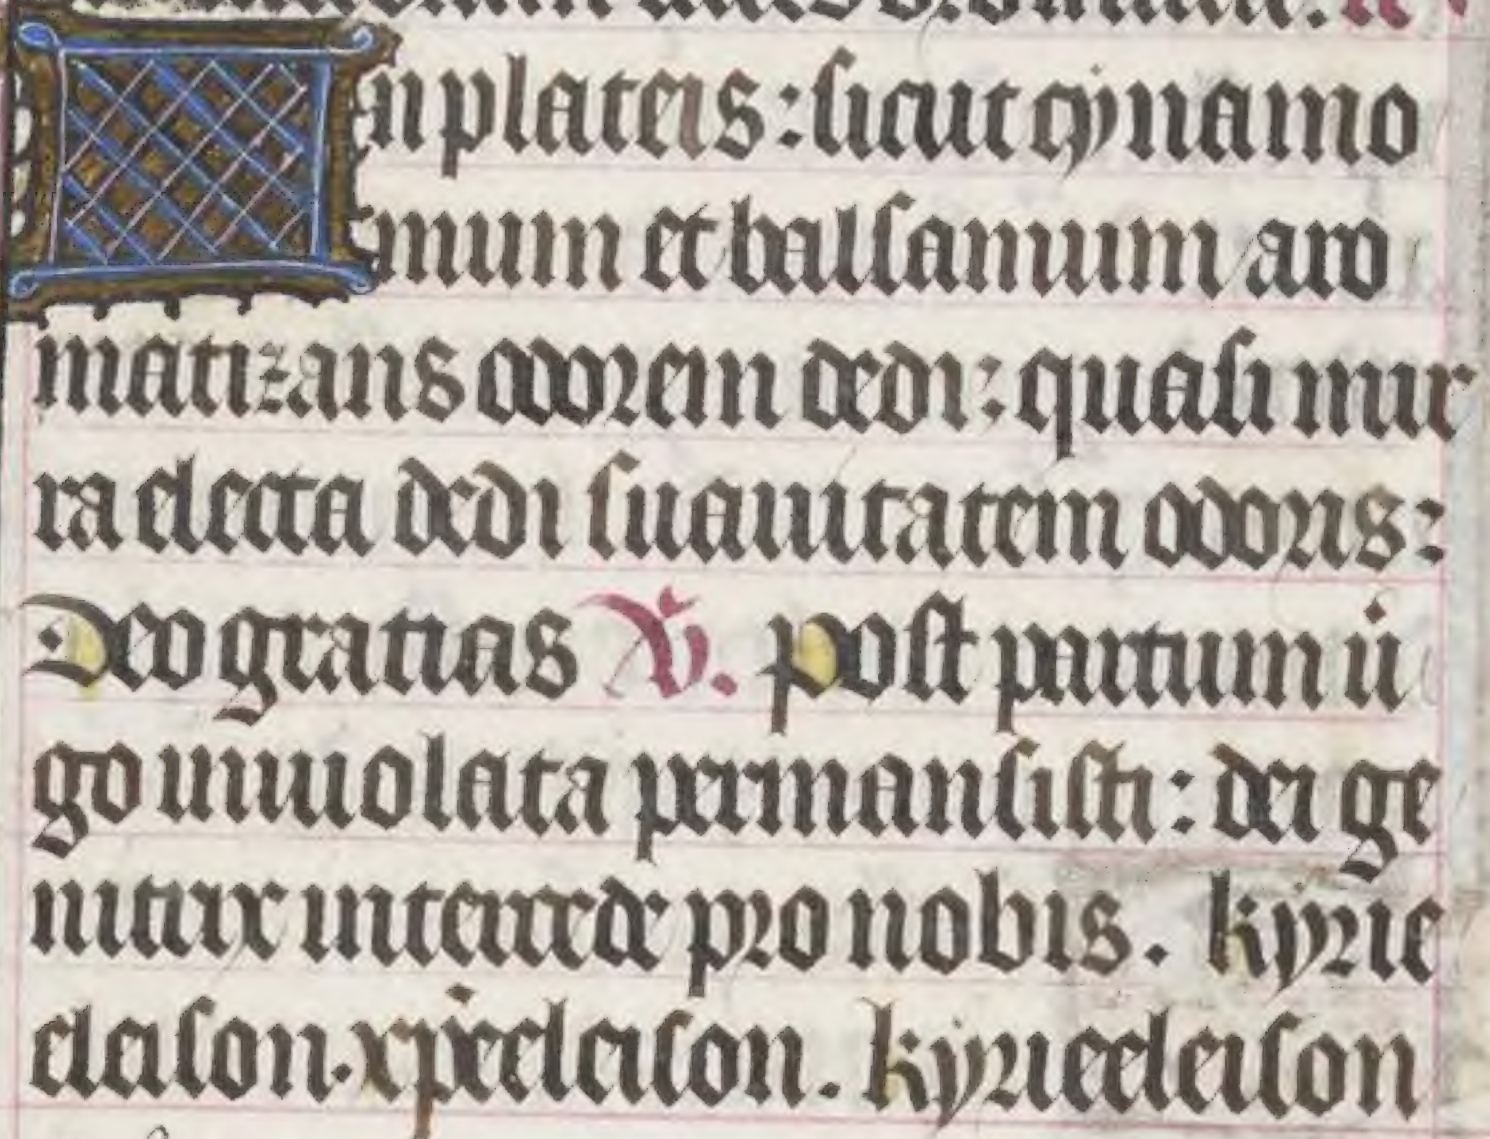 n plateis: sicut cynamo
mum et balsamum aro
matizans odorem dedi: quasi mir
ra electa dedi suauitatem odoris:
Deo gratias V. post partum ui
go inuiolata permansisti: dei ge
nitrix intercede pro nobis. kyrie
eleison. xpeeleison. kyrieeleison